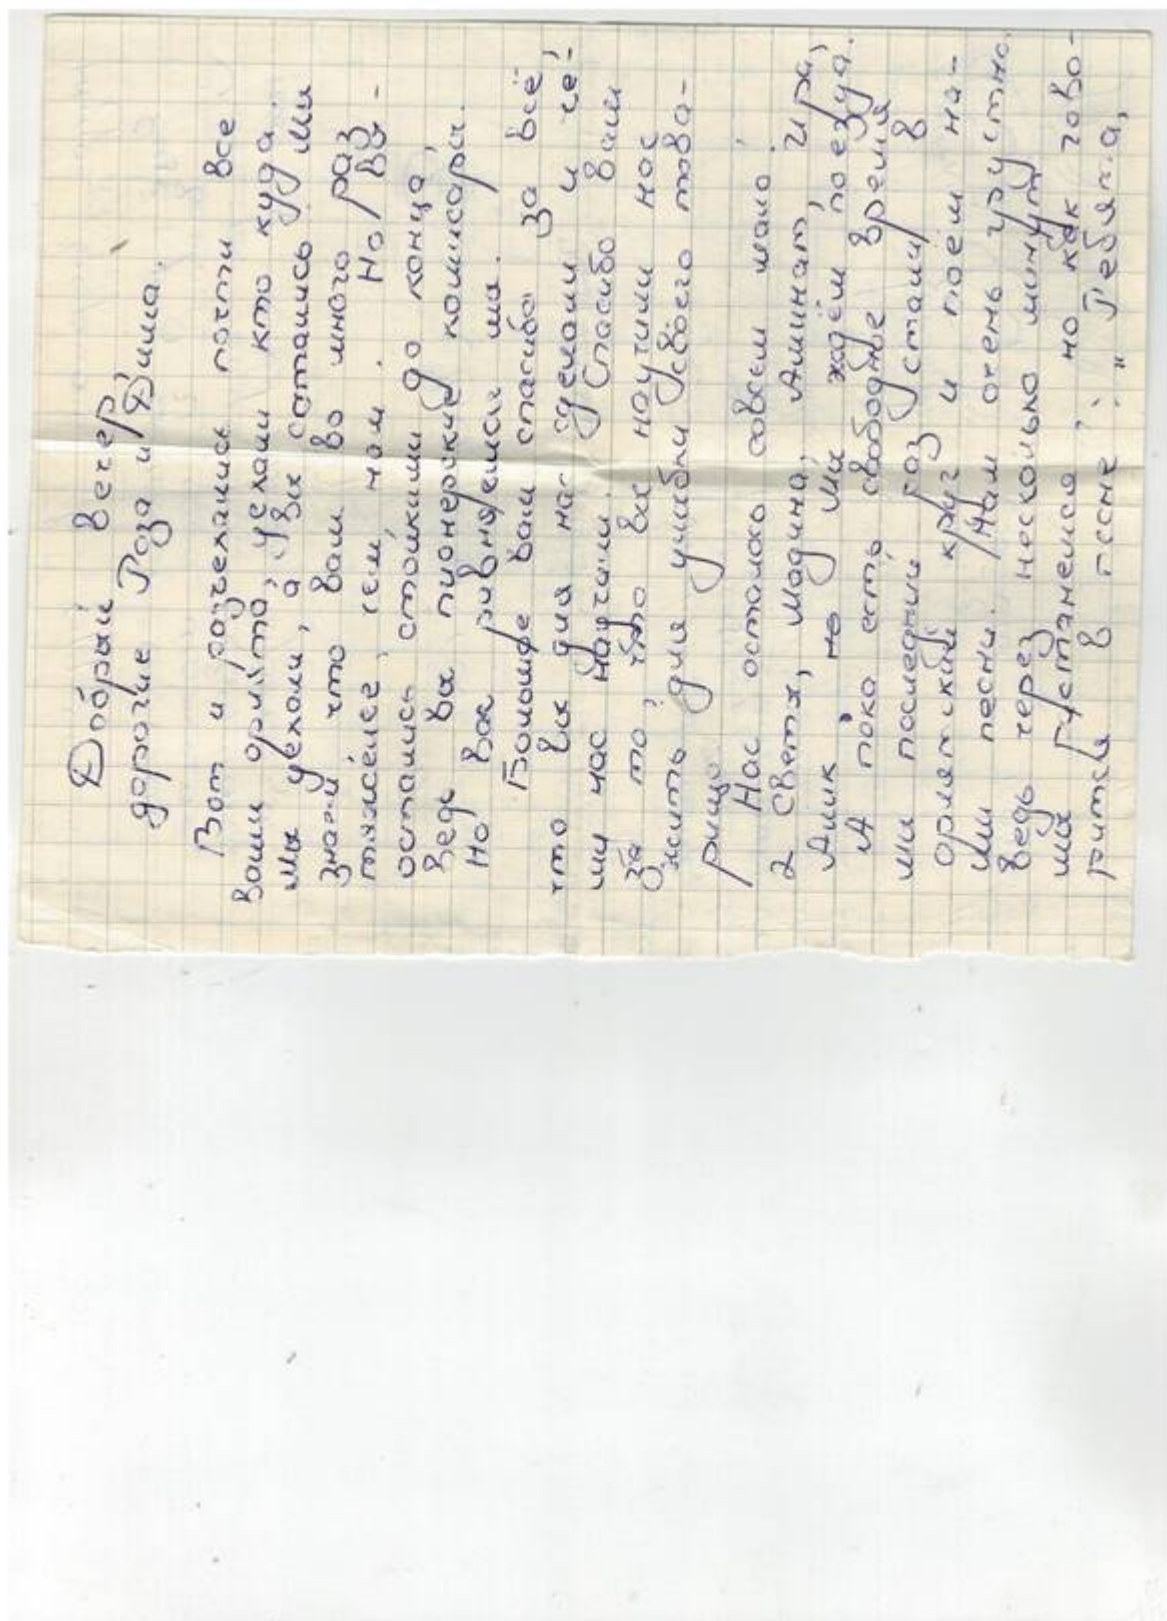 Добрый вечер,
дорогие Роза и Дима.
Вот и разъехались почти все
ваши орлята, уехали кто куда.
Мы уехали, а вы остались. Мы
знаем что вам во много раз
тяжелее, чем нам. Но вы -
остались стойкими до конца,
Ведь вы пионерские комисары.
На вас ровняемся мы.
Большое вам спасибо за всё
что вы для нас сделали и че-
му нас научили. Спасибо вам
за то, что вы научили нас
жить для улыбки своего това-
рища
Нас осталось совсем мало:
2 Светы, Мадина, Аминат, Ира,
Алик, но мы ждём поезда.
А пока есть свободное время
мы последний раз встали в
орлятский круг и поём на-
ши песни. Нам очень грустно,
ведь через несколько минут
мы расстанемся, но как гово-
рится в песне: "Ребята,